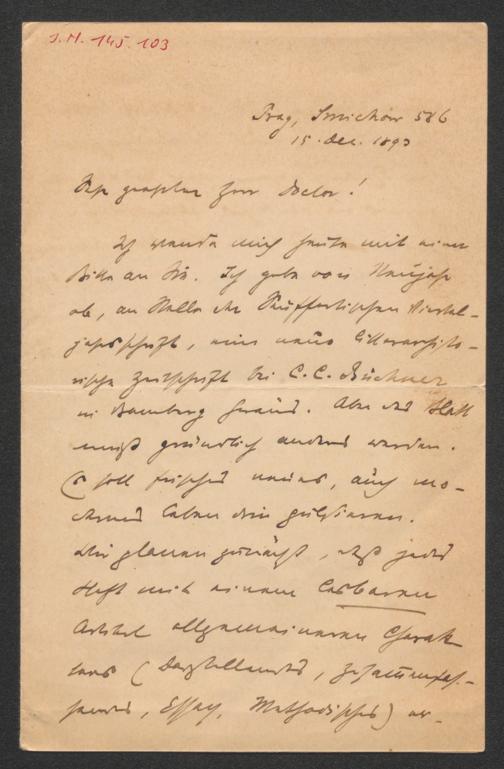 J.N. 145.103
Prag, Smichow 586
15. Dec. 1893
Sehr geehrter Herr Doctor!
Ich wende mich heute mit einer
Bitte an Sie. Ich gebe von Neujahr
ab, an Stelle der Seuffertischen Viertel-
jahrsschrift, eine neue Litterarhisto-
rische Zeitschrift bei C. C. Buchner
in Bamberg heraus. Aber das Blatt
muß gründlich anders werden.
Es soll frisches neues, auch mo-
dernes Leben drin pulsieren.
Wir planen zunächst, daß jedes
Heft mit einem lesbaren
Artikel allgemeineren Charak-
ters (Darstellendes, Zusammenfas-
sendes, Essay, Methodisches) er-